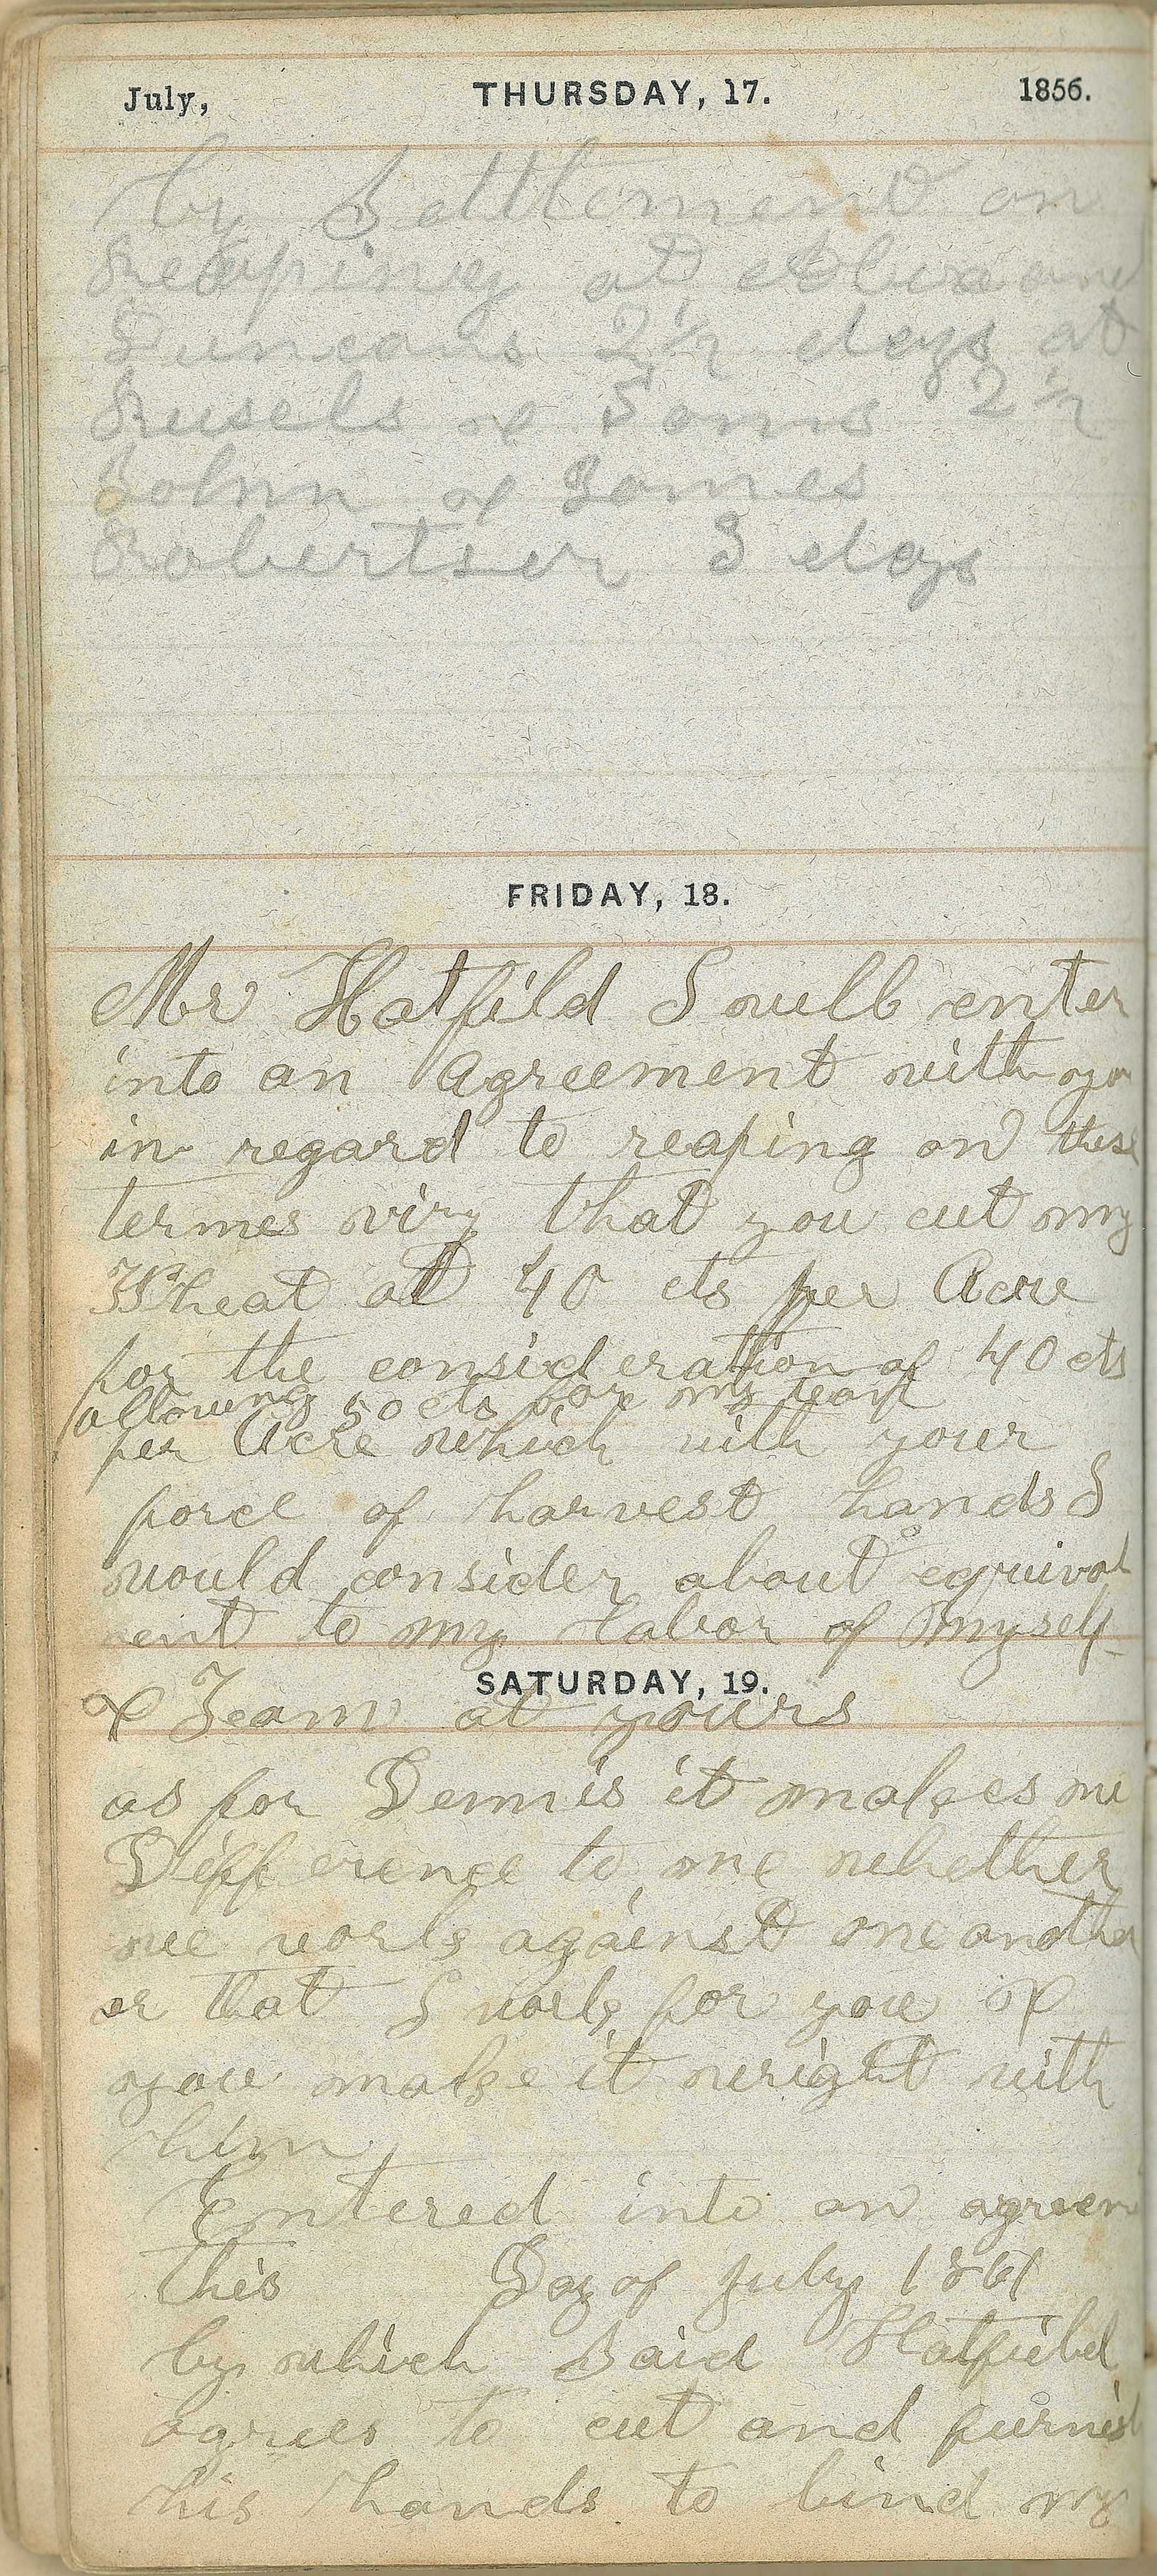 July, THURSDAY, 17. 1856.
by Settlement on
Reaping at
Duncans 2 1/2 days at
Rusels & Sons 2 1/2
John & James
Robertser 3 days
FRIDAY, 18.
Mr Hatfild I will enter
into an Agreement with you
in regard to reaping on these
termes viz that you cut my
Wheat at 40 cts per Acre
for the consideration of 40 cts
allowing 50 cts for my team
per Acre which with your
force of harvest hands I
would consider about equival
ent to my Labor of Myself
SATURDAY, 19.
& Team at yours
as for Dennis it makes no
Difference to me whether
we work against one another
or that I work for you &
you make it wright with
him
Entered into an agreem
this Day of July 1861
by which Said Hatfield
agrees to cut and furnish
his hands to bind my